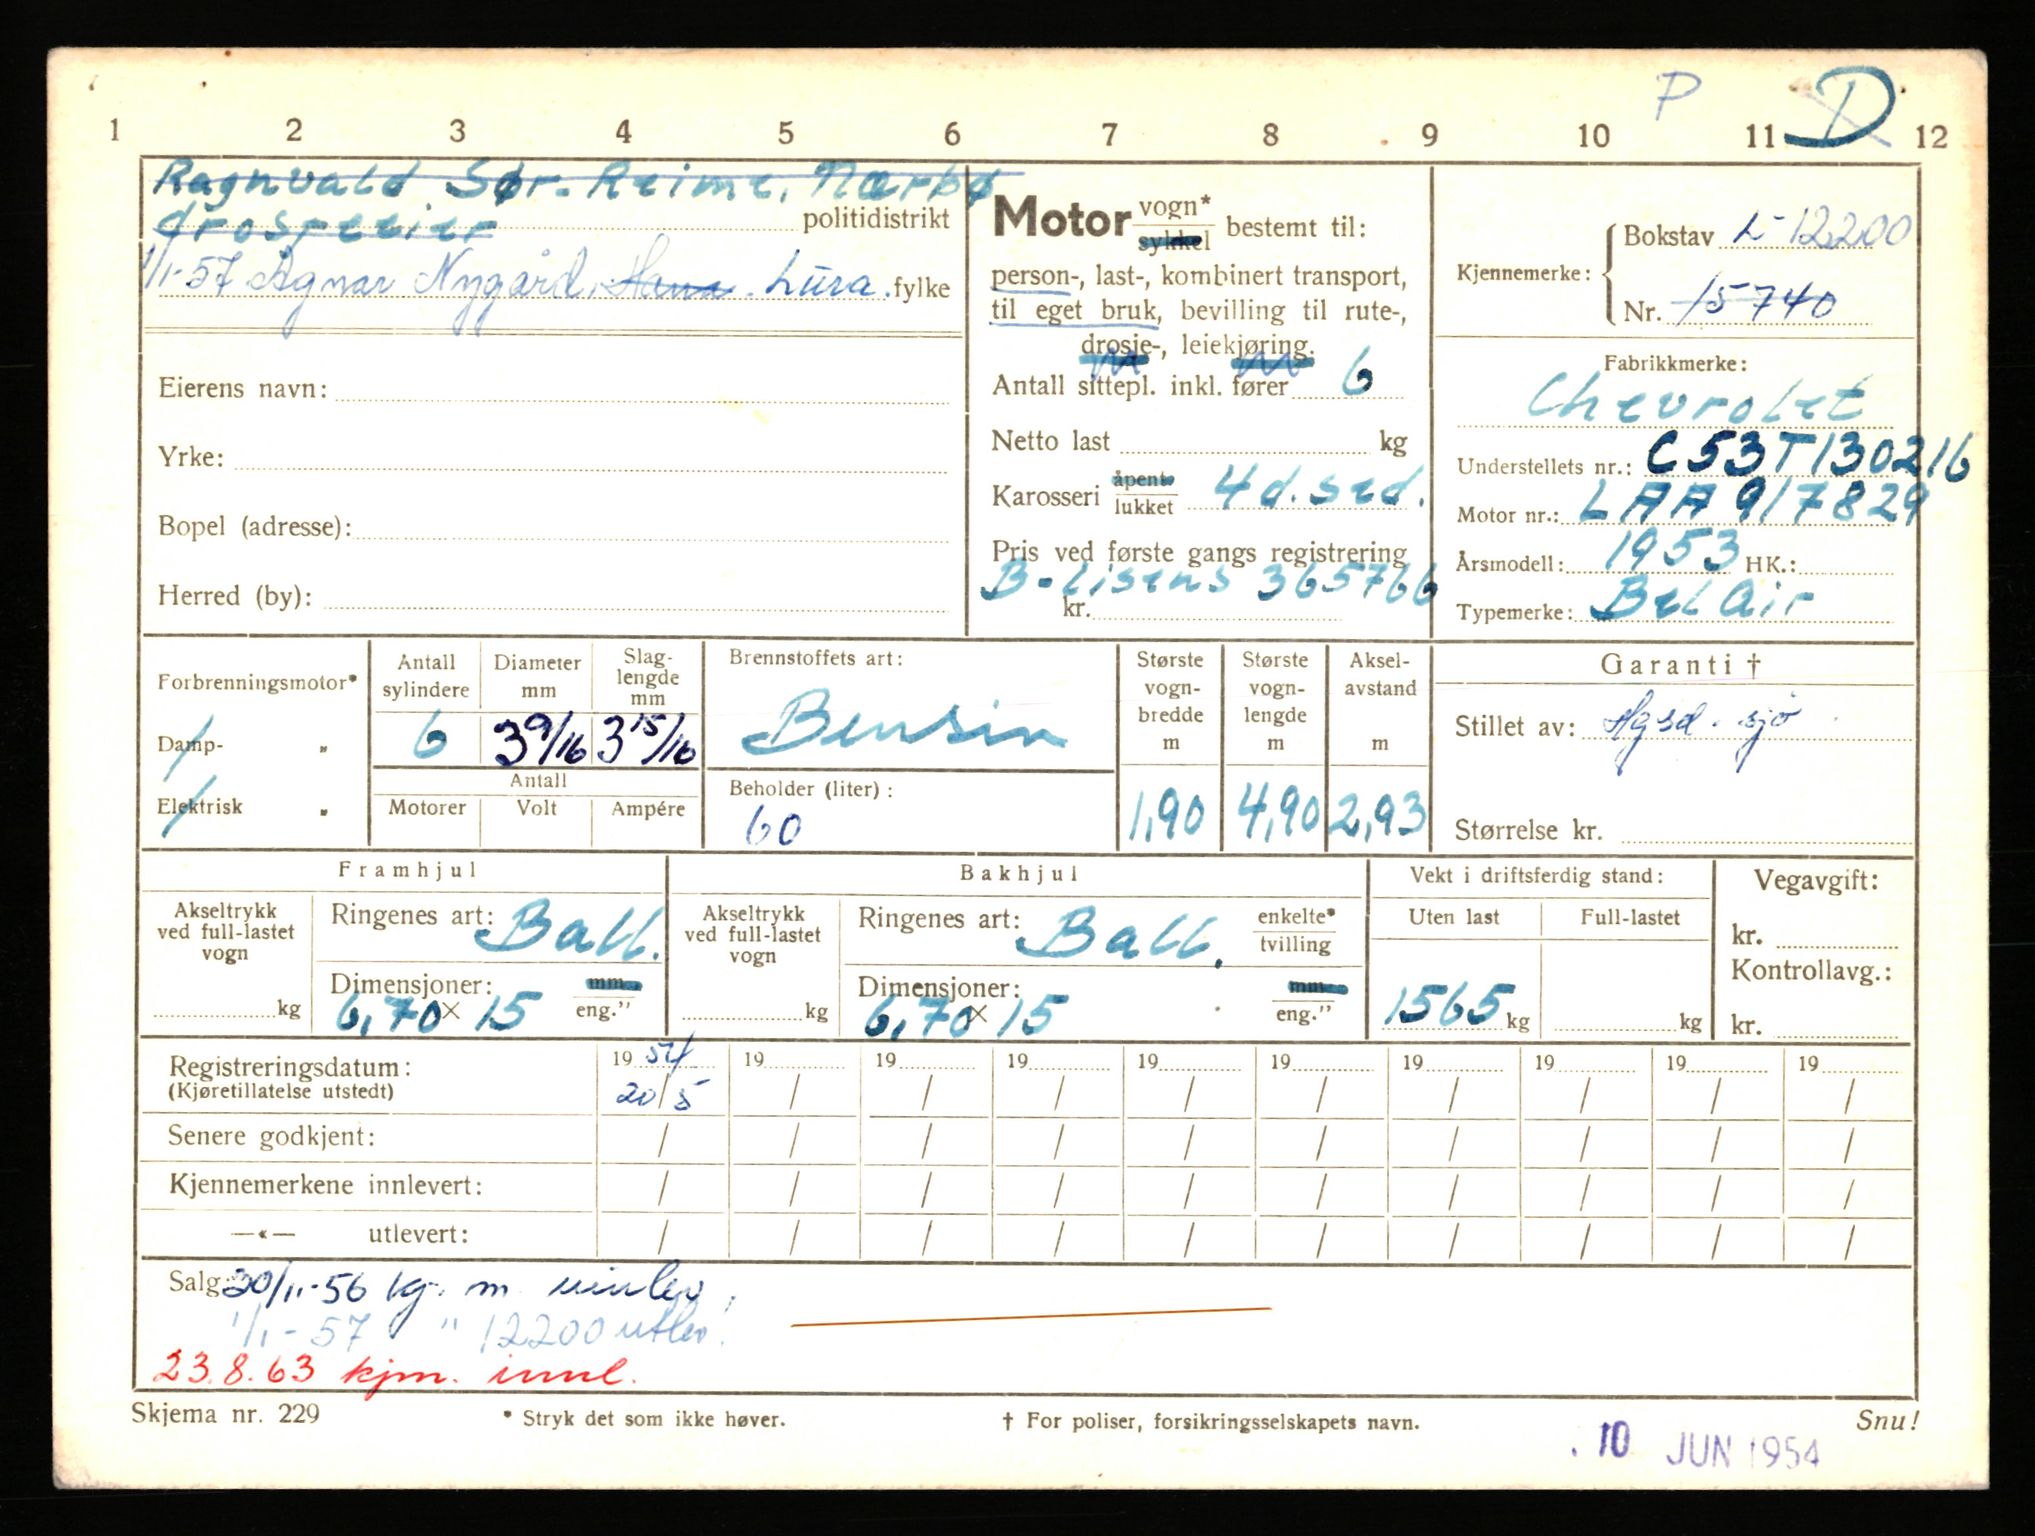 P D
1 2 3 4 5 6 7 8 9 10 11 12
Ragnvald Sør-Reime, Nærbø
drosjeeier politidistrikt
1/1-57 Agnar Nygård, Hana. Lura. fylke
Eierens navn:
Yrke:
Bopel (adresse):
Herred (by):
Motor vogn* sykkel bestemt til:
person-, last-, kombinert transport,
til eget bruk, bevilling til rute-,
drosje-, leiekjøring.
Antall sittepl. inkl. fører 6
Netto last kg
Karosseri åpent lukket 4d. sed.
Pris ved første gangs registrering
B-Lisens 365766
kr.
Kjennemerke: Bokstav L-12200
Nr. 15740
Fabrikkmerke:
Chevrolet
Understellets nr.: C53T130216
Motor nr.: LAA917829
Årsmodell: 1953 HK.:
Typemerke: Bel Air
Forbrenningsmotor*
Damp- „
Elektrisk „
Antall sylindere 6
Diameter mm 3 9/16
Slag-lengde mm 3 15/16
Antall
Motorer Volt Ampére
Brennstoffets art:
Bensin
Beholder (liter):
60
Største vogn-bredde m 1,90
Største vogn-lengde m 4,90
Aksel-avstand m 2,93
Garanti †
Stillet av: Hgsd. sjø
Størrelse kr.
Framhjul
Akseltrykk ved full-lastet vogn kg
Ringenes art: Ball.
Dimensjoner: mm
6,70 x 15 eng."
Bakhjul
Akseltrykk ved full-lastet vogn kg
Ringenes art: Ball. enkelte* tvilling
Dimensjoner: mm
6,70 x 15 eng."
Vekt i driftsferdig stand:
Uten last Full-lastet
1565 kg kg
Vegavgift:
kr.
Kontrollavg.:
kr.
Registreringsdatum: 19 54 19 19 19 19 19 19 19 19 19
(Kjøretillatelse utstedt) 20/5 / / / / / / / / /
Senere godkjent: / / / / / / / / / /
Kjennemerkene innlevert: / / / / / / / / / /
—«— utlevert: / / / / / / / / / /
Salg: 30/11-56 kj. m. innlev.
1/1-57 " 12200 utlev.
23.8.63 kjm. innl.
Skjema nr. 229 * Stryk det som ikke høver. † For poliser, forsikringsselskapets navn. Snu!
10 JUN 1954